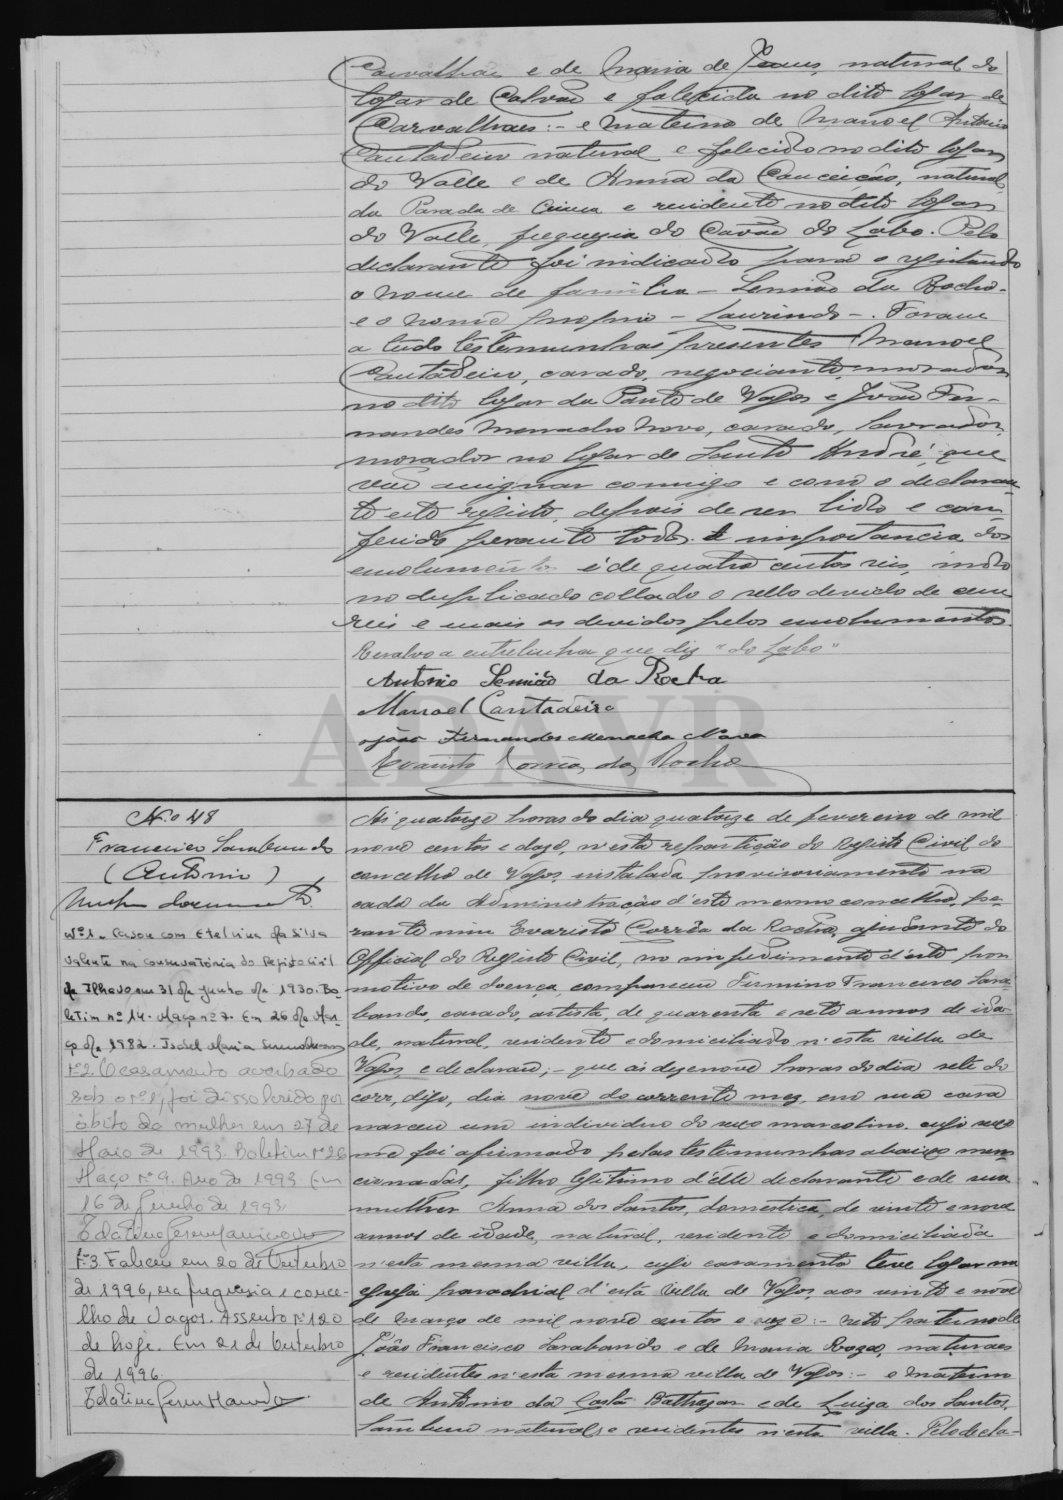 Carvalhaes e de Maria de Jesus, natural do
logar de Calvão e falecida no dito logar de
Carvalhaes: - e materno de Manoel Antonio
Cantadeiro natural e falecido no dito logar
do Valle e de Anna da Conceição, natural
da Parada de Cima e residente no dito logar
do Valle, freguesia do Covão do Lobo. Pelo
declarante foi indicado para o registando
o nome de familia - Semião da Rocha -
e o nome proprio - Laurindo -. Foram
a tudo testemunhas presentes Manoel
Cantadeiro, casado, negociante, morador
no dito logar da Ponte de Vagos e João Fer-
nandes Menacho Novo, casado, lavrador,
morador no logar de Santo André, que
vão assignar comigo e com o declaran-
te este registo, depois de ser lido e con-
ferido perante todos. A importancia dos
emolumentos é de quatro centos reis, indo
no duplicado collado o sello devido de cem
reis e mais os devidos pelos emolumentos.
Resalvo a entrelinha que diz "do Lobo"
Antonio Semião da Rocha
Manoel Cantadeiro
João Fernandes Menacho Novo
Evaristo Corrêa da Rocha
ADAVR
N.o 48
Francisco Sarabando
(Antonio)
Nenhum documento.
Nº1 - Casou com Etelvina da Silva
Valente na Conservatória do Registo Civil
de Ilhavo em 31 de Junho de 1930. Bo-
letim nº 14. Maço nº 7. Em 26 de Mar-
ço de 1982. Isabel Maria
Nº2. O casamento averbado
sob o nº1, foi dissolvido por
óbito da mulher em 27 de
Maio de 1993. Boletim Nº 26
Maço Nº 9. Ano de 1993 Em
16 de Junho de 1993
Nº3. Faleceu em 20 de Outubro
de 1996, na freguesia e conce-
lho de Vagos. Assento Nº 120
de hoje. Em 21 de Outubro
de 1996.
Ás quatorze horas do dia quatorze de fevereiro de mil
nove centos e doze, n'esta repartição do Registo Civil do
concelho de Vagos, instalada provisoriamente na
casa da Administração d'este mesmo concelho, pe-
rante mim Evaristo Corrêa da Rocha, ajudante do
Official do Registo Civil, no impedimento d'este por
motivo de doença, compareceu Firmino Francisco Sara-
bando, casado, artista, de quarenta e sete annos de ida-
de, natural, residente e domiciliado n'esta villa de
Vagos e declarou; - que ás dezenove horas do dia sete do
corr, digo, dia nove do corrente mez, em sua casa
nasceu um individuo do sexo masculino, cujo sexo
me foi afirmado pelas testemunhas abaixo men-
cionadas, filho legitimo d'elle declarante e de sua
mulher Anna dos Santos, domestica, de vinte e nove
annos de idade, natural, residente e domiciliada
n'esta mesma villa, cujo casamento teve logar na
egreja parochial d'esta villa de Vagos, aos vinte e nove
de março de mil nove centos e onze: - neto paterno de
João Francisco Sarabando e de Maria Roza, naturaes
e residentes n'esta mesma villa de Vagos: - e materno
de Antonio da Costa Balthazar e de Luiza dos Santos,
tambem naturaes e residentes n'esta villa. Pelo decla-